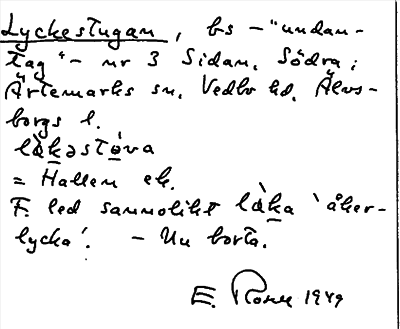 Lyckestugan, bs - "undan-
tag" - nr 3 Sidan, Södra;
Ärtemarks sn. Vedbo hd. Älvs-
borgs l.
lὰkəstòva
= Hallen ek.
F. led sannolikt lὰka 'åker-
lycka'. - Nu borta.
E. 1949